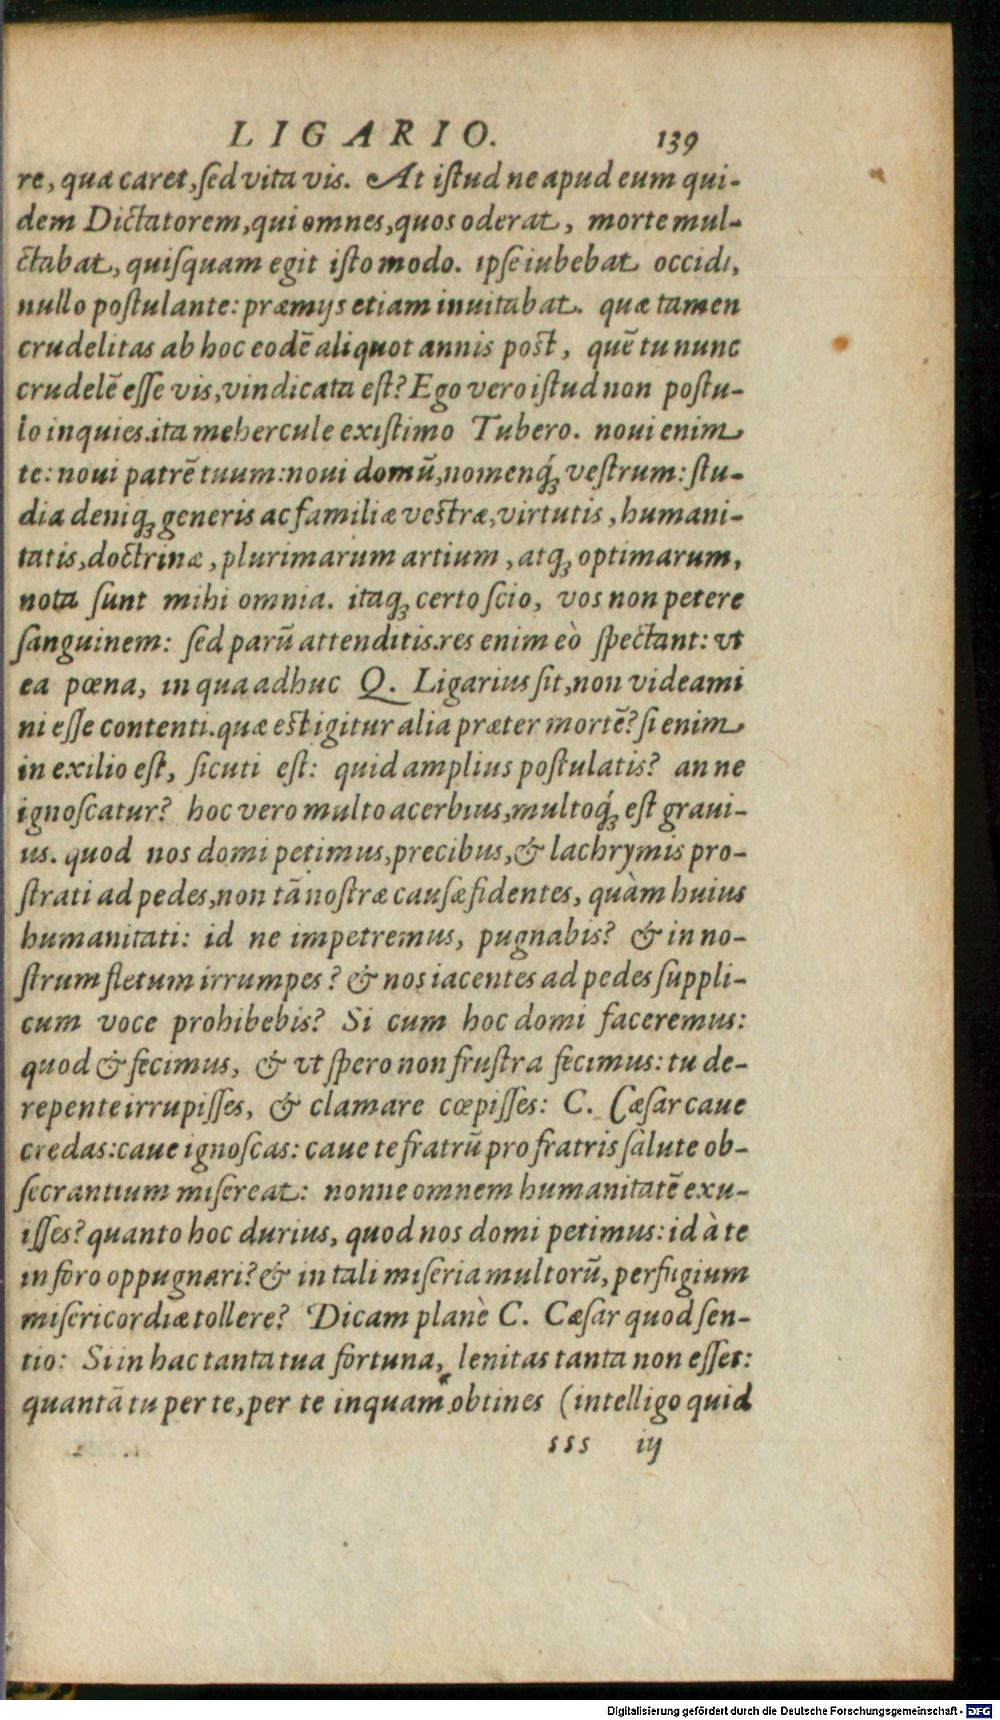 LIGARIO. 139
re, qua caret, sed vita vis. At istud ne apud eum qui-
dem Dictatorem, qui omnes, quos oderat, morte mul-
ctabat, quisquam egit isto modo. ipse iubebat occidi,
nullo postulante: præmijs etiam inuitabat. quæ tamen
crudelitas ab hoc eodē aliquot annis post, quē tu nunc
crudelē esse vis, vindicata est? Ego vero istud non postu-
lo inquies. ita mehercule existimo Tubero. noui enim
te: noui patrē tuum: noui domū, nomenq́ꝫ vestrum: stu-
dia deniqꝫ generis ac familiæ vestræ, virtutis, humani-
tatis, doctrinæ, plurimarum artium, atqꝫ optimarum,
nota sunt mihi omnia. itaqꝫ certo scio, vos non petere
sanguinem: sed parū attenditis. res enim eò spectant: vt
ea pœna, in qua adhuc Q. Ligarius sit, non videami
ni esse contenti. quæ est igitur alia præter mortē? si enim
in exilio est, sicuti est: quid amplius postulatis? an ne
ignoscatur? hoc vero multo acerbius, multoq́ꝫ est graui-
us. quod nos domi petimus, precibus, & lachrymis pro-
strati ad pedes, non tā nostræ causæ fidentes, quàm huius
humanitati: id ne impetremus, pugnabis? & in no-
strum fletum irrumpes? & nos iacentes ad pedes suppli-
cum voce prohibebis? Si cum hoc domi faceremus:
quod & fecimus, & vt spero non frustra fecimus: tu de-
repente irrupisses, & clamare cœpisses: C. Cæsar caue
credas: caue ignoscas: caue te fratrū pro fratris salute ob-
secrantium misereat: nonne omnem humanitatē exu-
isses? quanto hoc durius, quod nos domi petimus: id à te
in foro oppugnari? & in tali miseria multorū, perfugium
misericordiæ tollere? Dicam planè C. Cæsar quod sen-
tio: Si in hac tanta tua fortuna, lenitas tanta non esset:
quantā tu per te, per te inquam obtines (intelligo quid
sss iij
Digitalisierung gefördert durch die Deutsche Forschungsgemeinschaft - DFG